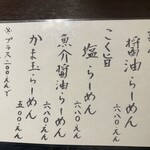 醤油らーめん
六八〇えん
こく旨
塩らーめん
六八〇えん
魚介醤油らーめん
六八〇えん
かま玉らーめん
五〇〇えん
※プラス二〇〇えんで